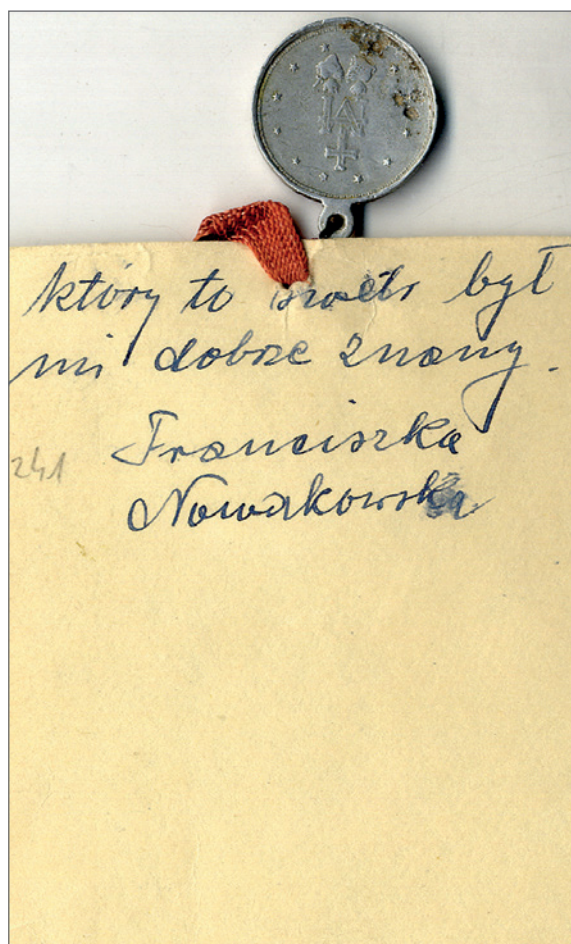 który to był
mi dobrze znany.
Franciszka
241
Nowakowska